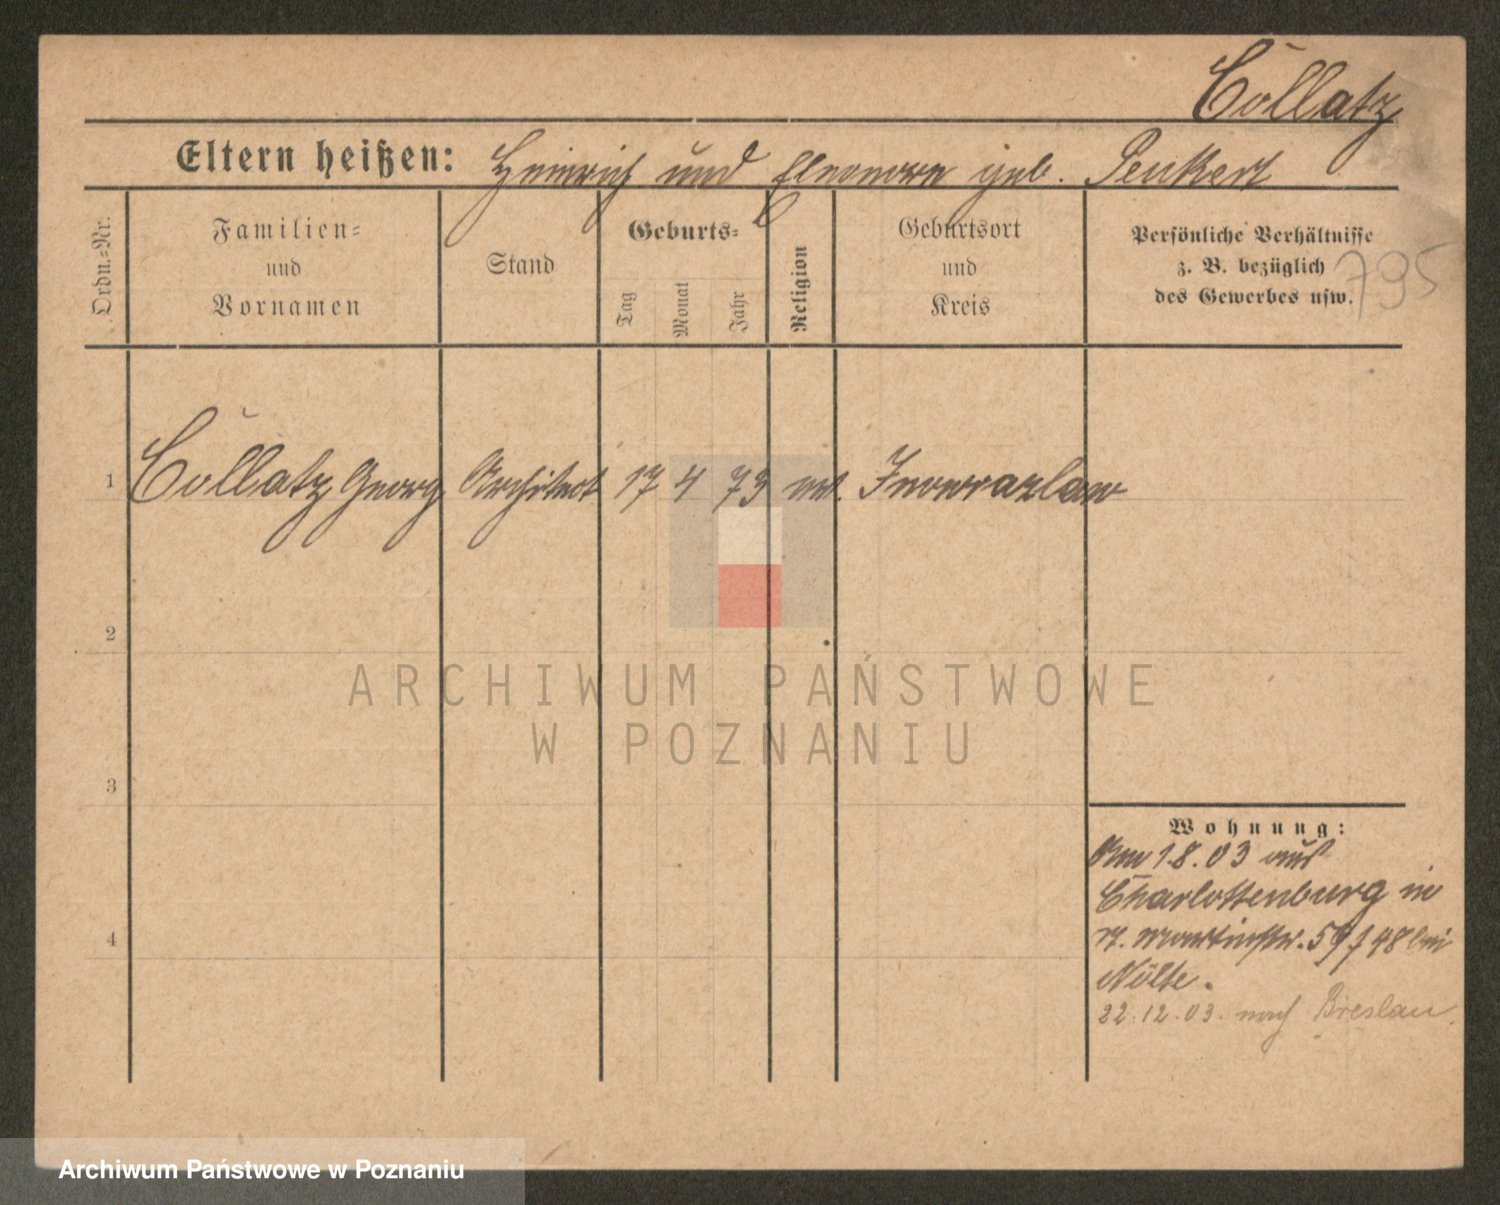 Collatz
Eltern heißen: Heinrich und Eleonore geb. Penkert
Ordn.-Nr.
Familien-
und
Vornamen
Stand
Geburts-
Tag
Monat
Jahr
Religion
Geburtsort
und
Kreis
Persönliche Verhältnisse
z. B. bezüglich
des Gewerbes usw.
795
1 Collatz Georg Architect 17 4 73 ev. Inowrazlaw
2
3
4
Wohnung:
Am 1.8.03 aus
Charlottenburg in
St. Martinstr. 59/48 bei
Nölte.
22.12.03. nach Breslau.
ARCHIWUM PAŃSTWOWE
W POZNANIU
Archiwum Państwowe w Poznaniu